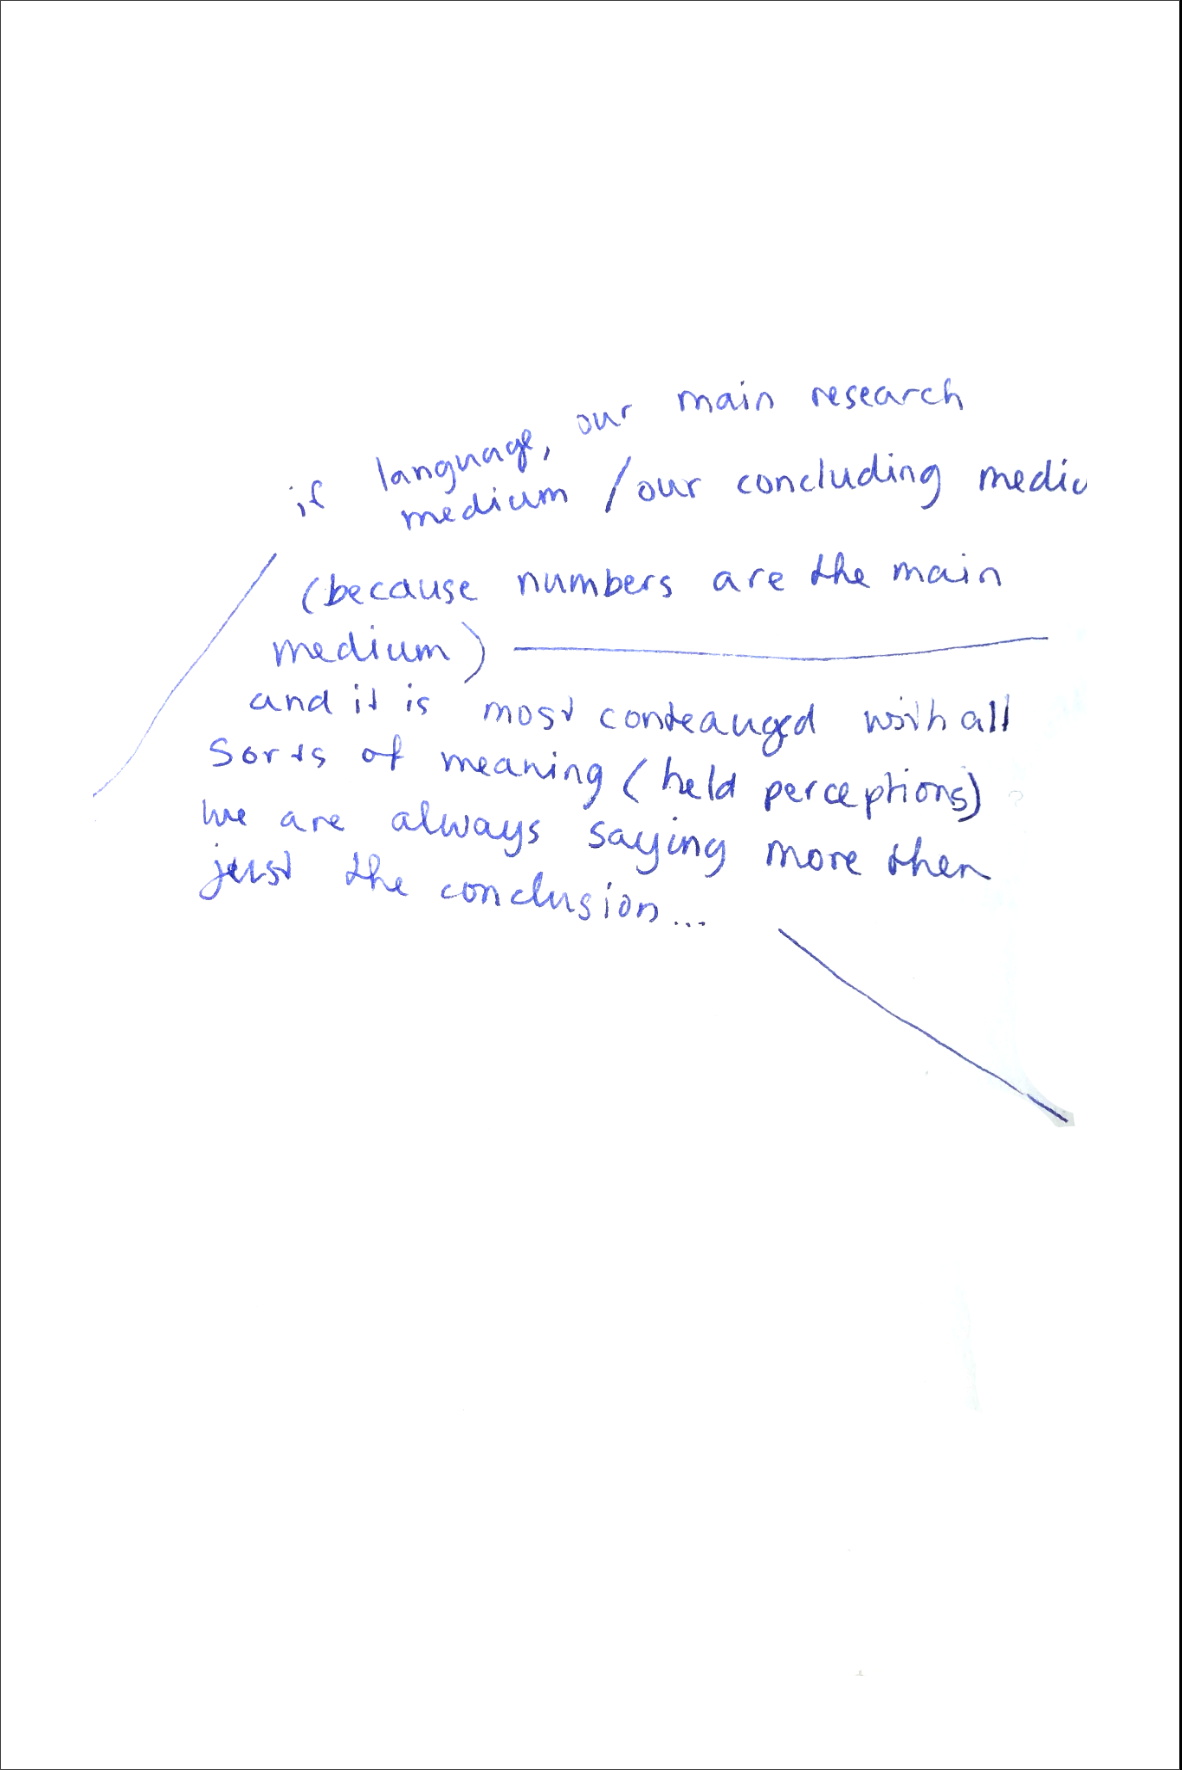 if language, our main research
medium / our concluding mediu
(because numbers are the main
medium)
and it is most conteauged with all
sorts of meaning (held perceptions)
we are always saying more then
just the conclusion...